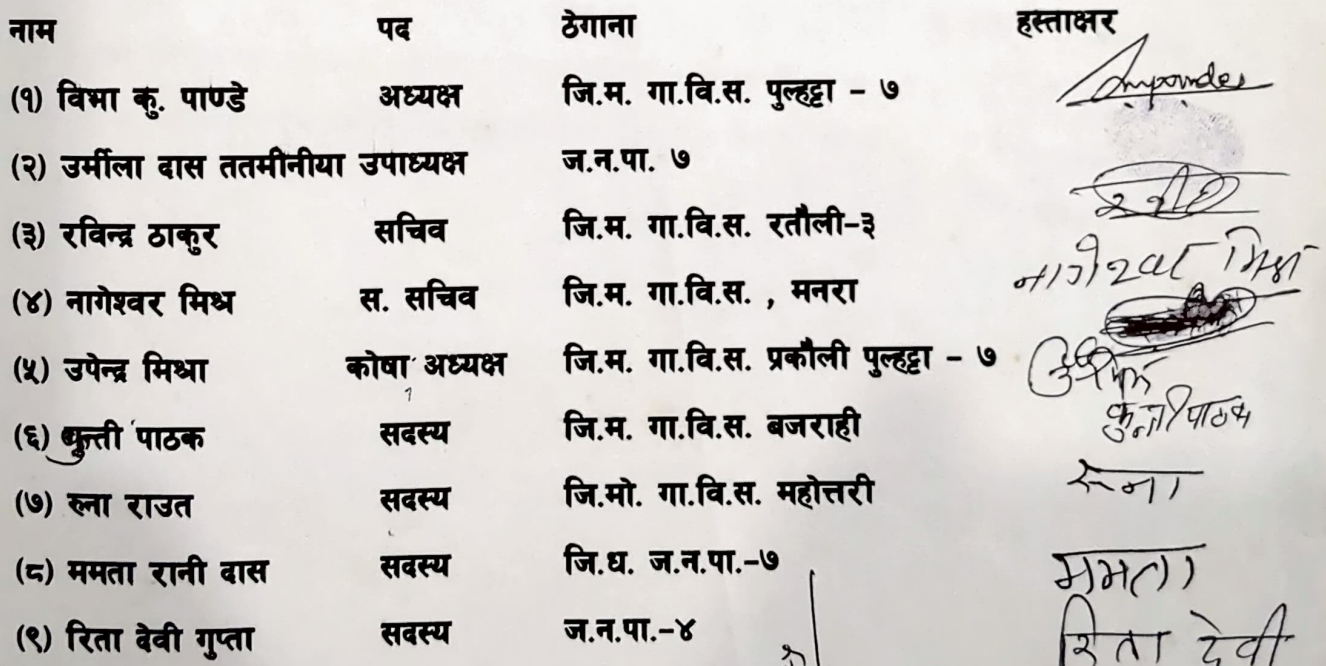 नाम पद ठेगाना हस्ताक्षर
(१) विभा कु. पाण्डे अध्यक्ष जि.म. गा.वि.स. पुल्हट्टा - ७
(२) उर्मीला दास ततमीनीया उपाध्यक्ष ज.न.पा. ७
(३) रविन्द्र ठाकुर सचिव जि.म. गा.वि.स. रतौली-३
(४) नागेश्वर मिश्र स. सचिव जि.म. गा.वि.स. , मनरा नागेश्वर मिश्र
(५) उपेन्द्र मिश्रा कोषा अध्यक्ष जि.म. गा.वि.स. प्रकौली पुल्हट्टा - ७
(६) कुन्ती पाठक सदस्य जि.म. गा.वि.स. बजराही कुन्ती पाठक
(७) रुना राउत सदस्य जि.मो. गा.वि.स. महोत्तरी रुना
(८) ममता रानी दास सदस्य जि.ध. ज.न.पा.-७ ममता
(९) रिता देवी गुप्ता सदस्य ज.न.पा.-४ रिता देवी